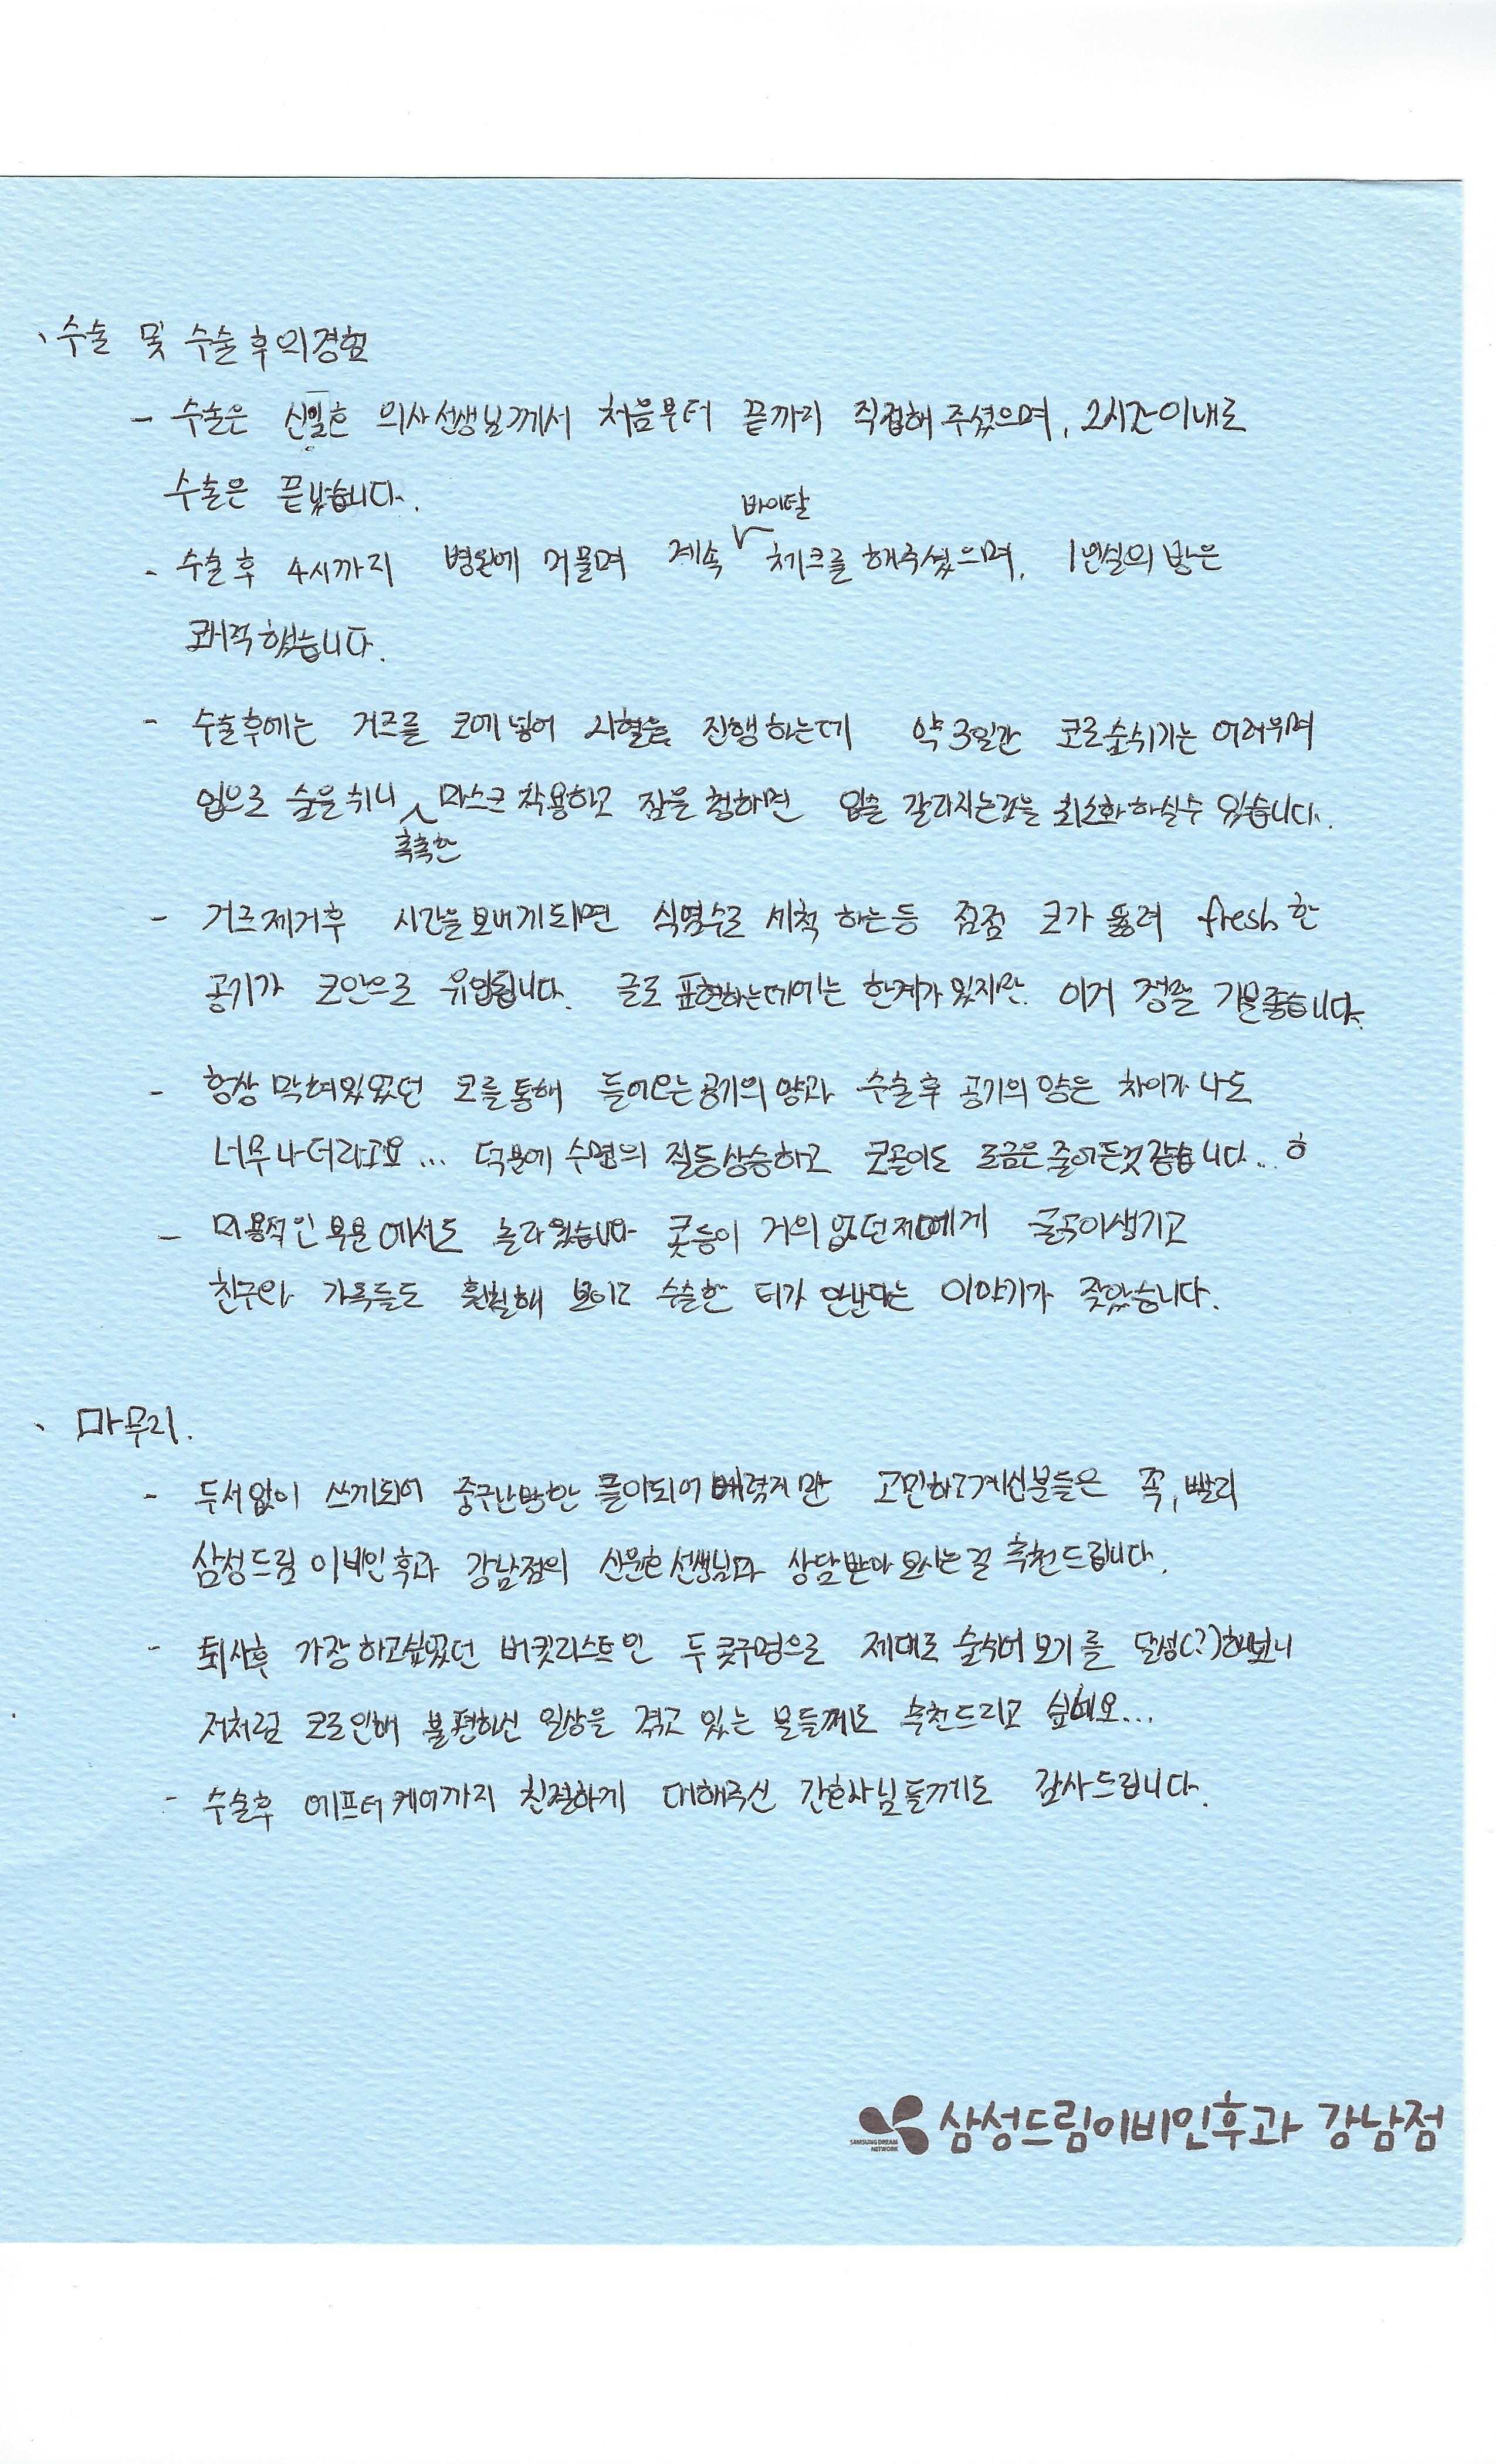 、수술 및 수술 후의 경험
- 수술은 의사선생님께서 처음부터 끝까지 직접해 주셨으며, 2시간이내로
수술은 끝났습니다.
바이탈
- 수술 후 4시까지 병원에 머물며 계속 체크를 해주셨으며, 1인실의 방은
쾌적했습니다.
- 수술후에는 거즈를 코에 넣어 지혈을 진행하는데 약 3일간 코로 숨쉬기는 어려우며
입으로 숨을 쉬니 마스크 착용하고 잠을 청하면 입술 갈라지는것을 최소화 하실수 있습니다.
촉촉한
- 거즈제거후 시간을 보내게되면 식염수로 세척 하는등 점점 코가 뚫려 fresh 한
공기가 코안으로 유입됩니다. 글로 표현하는데에는 한계가 있지만 이거 정말 기분좋습니다.
- 항상 막혀있었던 코를 통해 들어오는 공기의 양과 수술 후 공기의 양은 차이가 나도
너무 나더라고요... 덕분에 수면의 질도 상승하고 코골이도 조금은 줄어든것 같습니다..ㅎ
- 미용적인 부분에서도 놀라웠습니다 콧등이 거의 없던저에게 굴곡이생기고
친구와 가족들도 훤칠해 보이고 수술한 티가 안난다는 이야기가 잦았습니다.
、마무리.
- 두서없이 쓰게되어 중구난방한 글이되어 버렸지만 고민하고계신분들은 꼭, 빨리
삼성드림이비인후과 강남점의 선생님과 상담받아 보시는걸 추천드립니다.
- 퇴사후 가장 하고싶었던 버킷리스트인 두 콧구멍으로 제대로 숨쉬어 보기를 달성(?)해보니
저처럼 코로인해 불편하신 일상을 겪고 있는 분들께도 추천드리고 싶네요...
- 수술후 에프터케어까지 친절하게 대해주신 간호사님들께도 감사드립니다.
SAMSUNG DREAM
NETWORK
삼성드림이비인후과 강남점